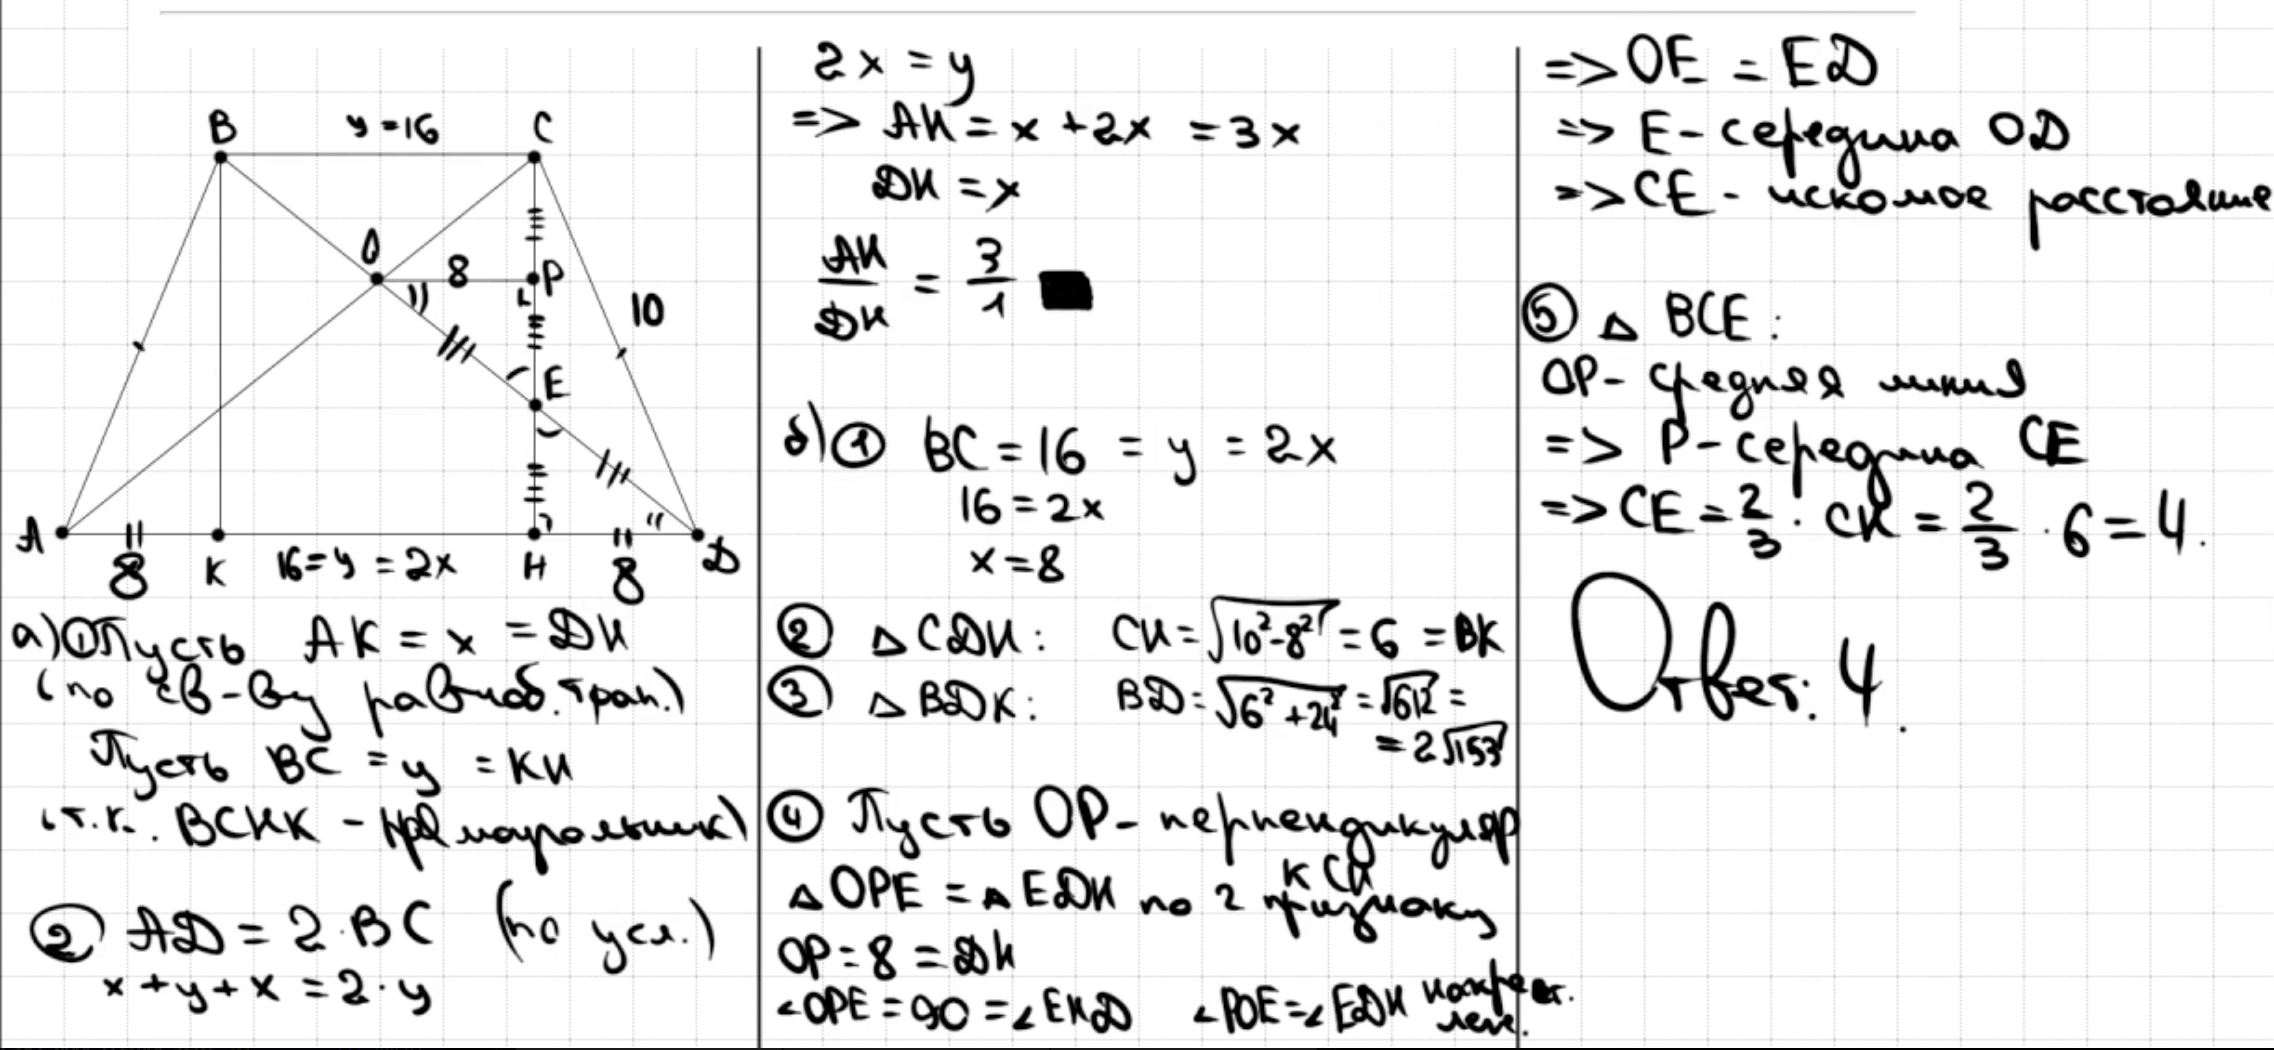 B y=16 C
O 8 P
10
E
A 8 K 16=y=2x H 8 D
а) ① Пусть AK = x = DH
(по св-ву равноб. трап.)
Пусть BC = y = KH
(т.к. BCHK - прямоугольник)
② AD = 2·BC (по усл.)
x+y+x = 2·y
2x = y
=> AH = x + 2x = 3x
DH = x
AH/DH = 3/1
б) ① BC = 16 = y = 2x
16 = 2x
x = 8
② △CDH: CH = √10²-8² = 6 = BK
③ △BDK: BD = √6²+24² = √612 =
= 2√153
④ Пусть OP - перпендикуляр
к CH
△OPE = △EDH по 2 признаку
OP = 8 = DH
∠OPE = 90 = ∠EHD ∠POE = ∠EDH накрест.
леж.
=> OE = ED
=> E - середина OD
=> CE - искомое расстояние
⑤ △ BCE:
OP - средняя линия
=> P - середина CE
=> CE = 2/3 · CH = 2/3 · 6 = 4.
Ответ: 4.